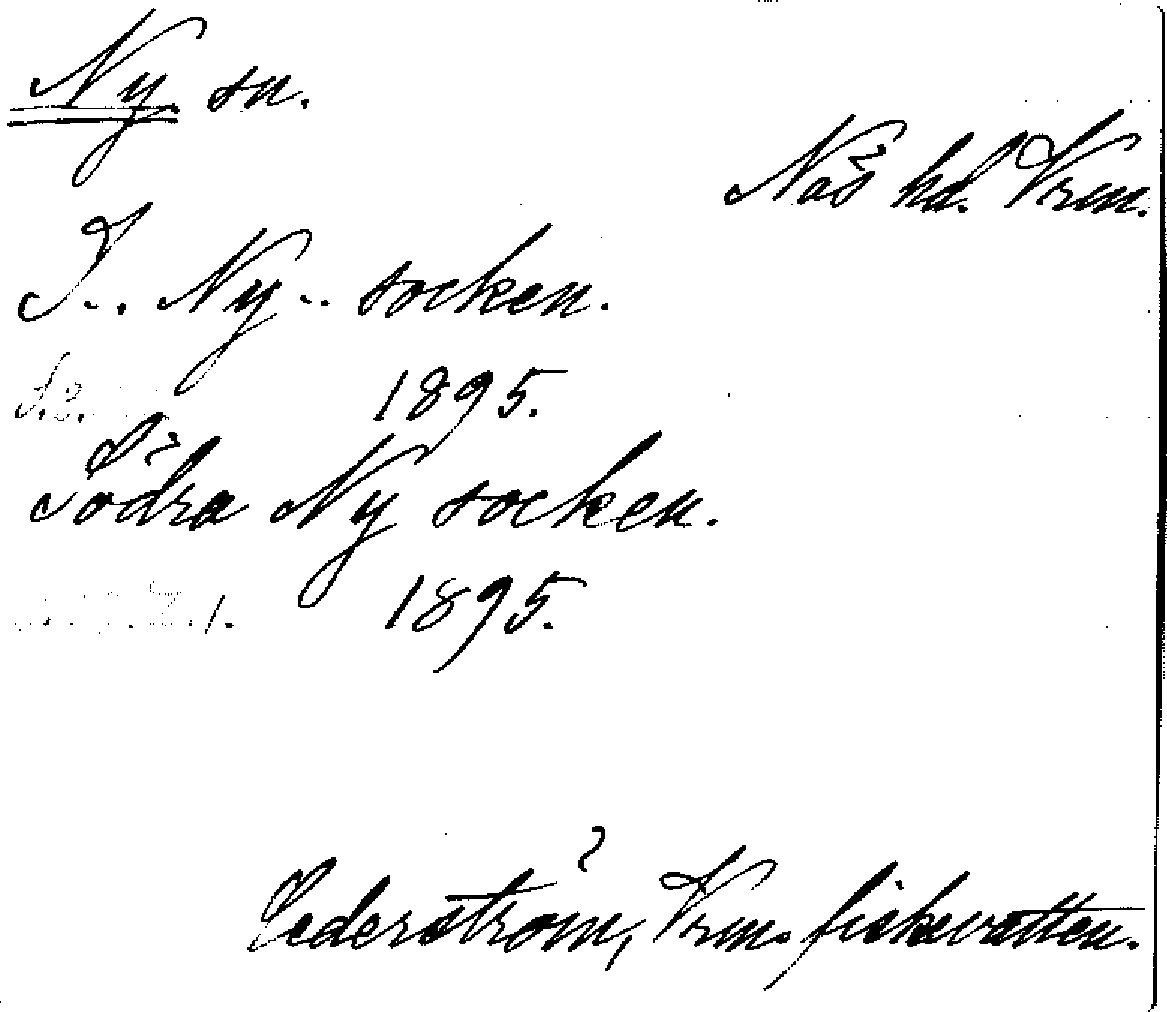 Ny sn.
Näs hd. Vrm.
I.. Ny.. socken.
1895.
Södra Ny socken.
1895.
Cederström, Vrm. fiskevatten.